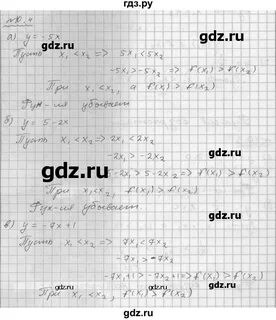 №10.4
а) y = -5x
Пусть x₁ < x₂ => 5x₁ < 5x₂
-5x₁ > -5x₂ => f(x₁) > f(x₂)
При x₁ < x₂, а f(x₁) > f(x₂)
Фук-ия убывает
gdz.ru
б) y = 5 - 2x
Пусть x₁ < x₂ => 2x₁ < 2x₂
-2x₁ > -2x₂
5 - 2x₁ > 5 - 2x₂ => f(x₁) > f(x₂)
При x₁ < x₂, f(x₁) > f(x₂)
Фук-ия убывает
gdz.ru
в) y = -7x + 1
Пусть x₁ < x₂ => 7x₁ < 7x₂
-7x₁ > -7x₂
-7x₁ + 1 > -7x₂ + 1 => f(x₁) > f(x₂)
При x₁ < x₂, f(x₁) > f(x₂)
gdz.ru